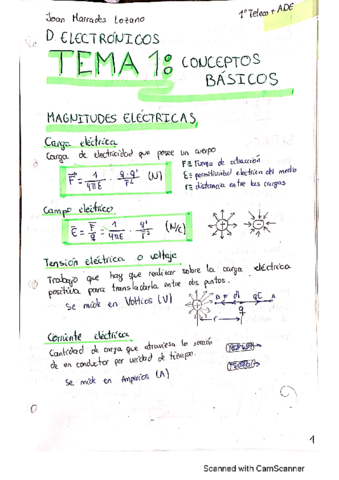 Joan Marrades Lozano
1º Teleco + ADE
D. ELECTRÓNICOS
TEMA 1: CONCEPTOS
BÁSICOS
MAGNITUDES ELÉCTRICAS
Carga eléctrica
Carga de electricidad que posee un cuerpo
F = 1/4πε q·q'/r² (N)
F ≡ Fuerza de atracción
ε ≡ permitividad eléctrica del medio
r ≡ distancia entre las cargas
Campo eléctrico
E = F/q = 1/4πε q'/r² (N/C)
Tensión eléctrica o voltaje
Trabajo que hay que realizar sobre la carga eléctrica
positiva para transladarla entre dos puntos.
Se mide en Voltios (V)
B F dl qE A
r q
Corriente eléctrica
Cantidad de carga que atraviesa la sección
de un conductor por unidad de tiempo.
Se mide en Amperios (A)
1
Scanned with CamScanner